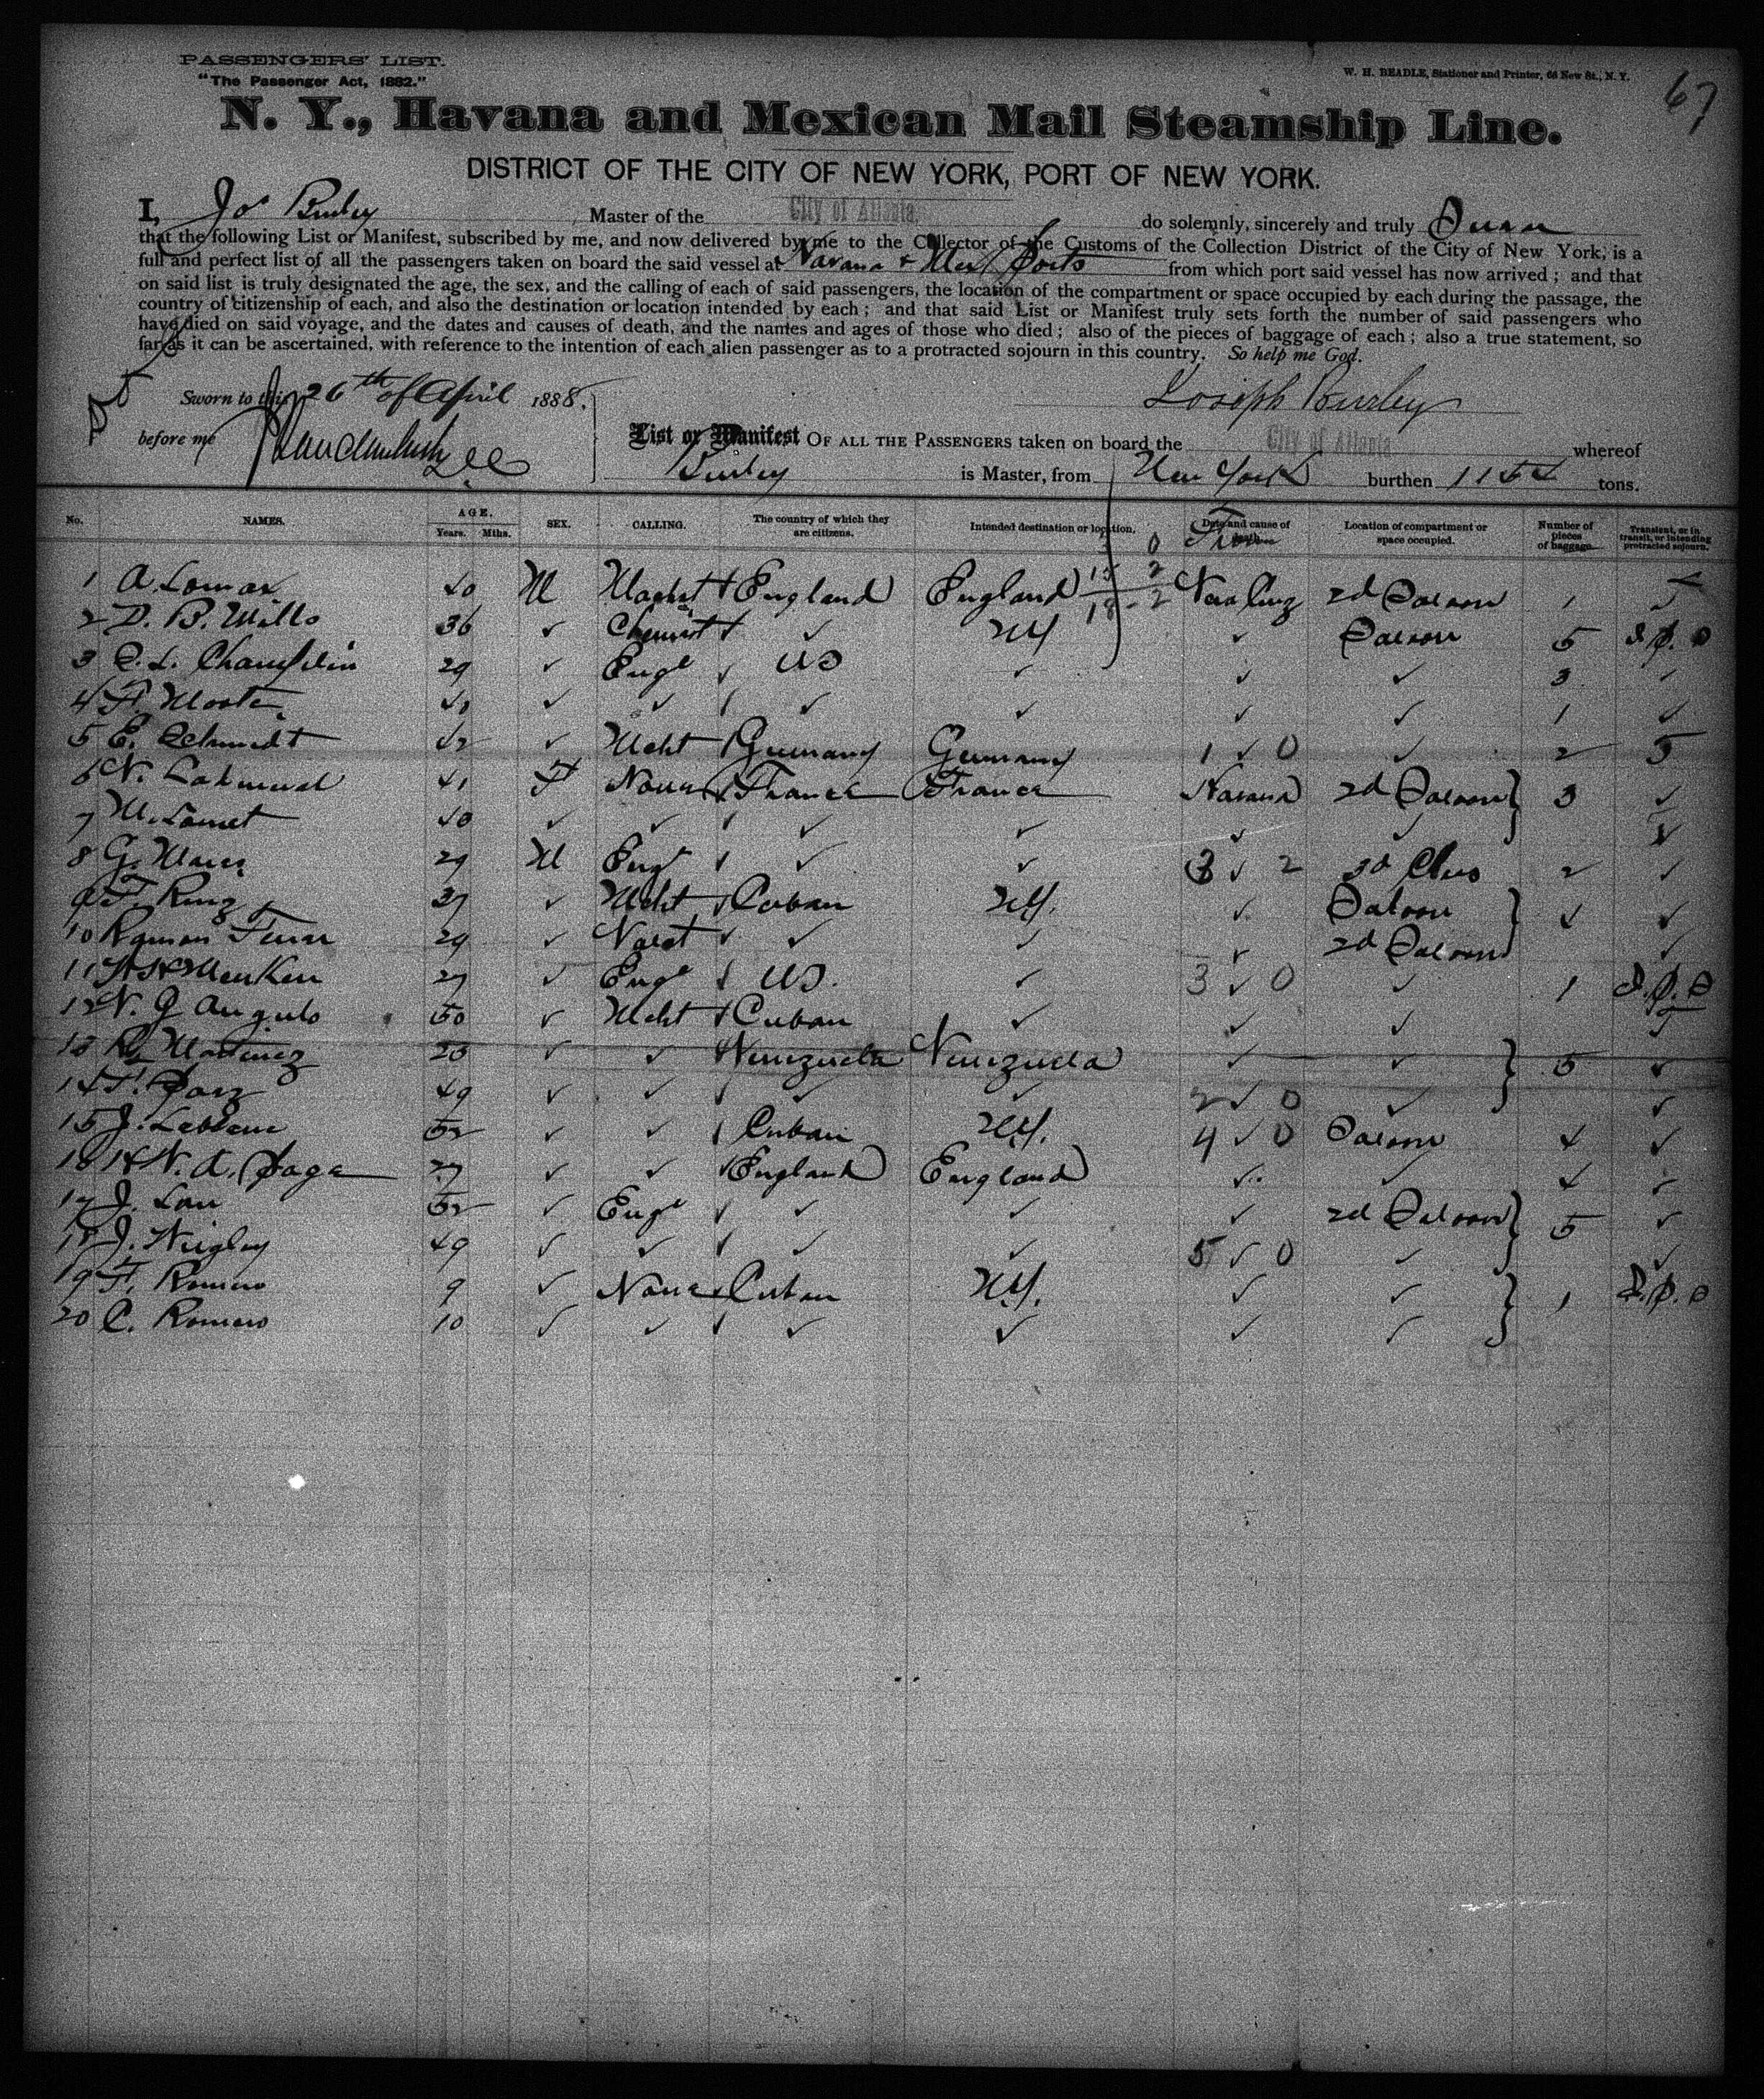 PASSENGERS' LIST.
"The Passenger Act, 1882."
W. H. BEADLE, Stationer and Printer, 64 New St., N. Y.
67
N. Y., Havana and Mexican Mail Steamship Line.
DISTRICT OF THE CITY OF NEW YORK, PORT OF NEW YORK.
I, Jos Burley Master of the City of Atlanta do solemnly, sincerely and truly Swear
that the following List or Manifest, subscribed by me, and now delivered by me to the Collector of the Customs of the Collection District of the City of New York, is a
full and perfect list of all the passengers taken on board the said vessel at Havana & Mex Ports from which port said vessel has now arrived; and that
on said list is truly designated the age, the sex, and the calling of each of said passengers, the location of the compartment or space occupied by each during the passage, the
country of citizenship of each, and also the destination or location intended by each; and that said List or Manifest truly sets forth the number of said passengers who
have died on said voyage, and the dates and causes of death, and the names and ages of those who died; also of the pieces of baggage of each; also a true statement, so
far as it can be ascertained, with reference to the intention of each alien passenger as to a protracted sojourn in this country. So help me God.
Sworn to this 26th of April 1888. Joseph Burley
before me
List or Manifest OF ALL THE PASSENGERS taken on board the City of Atlanta whereof
Burley is Master, from New York burthen tons.
No. NAMES. AGE. Years. Mths. SEX. CALLING. The country of which they are citizens. Intended destination or location. Date and cause of death. Location of compartment or space occupied. Number of pieces of baggage. Transient, or in transit, or intending protracted sojourn.
From
1 A. Lomax 40 M Machst England England Vera Cruz 2d Saloon 1 ✓
2 D. B. Mills 36 ✓ Chemist ✓ NY ✓ Saloon 5
3 29 ✓ Engr US ✓ ✓ ✓ 3 ✓
4 ✓ ✓ ✓ ✓ ✓ ✓ 1 ✓
5 E. Schmidt 42 ✓ Mcht Germany Germany 1 ✓ 0 ✓ 2
6 41 F None France France Havana 2d Saloon 3 ✓
7 40 ✓ ✓ ✓ ✓ ✓ ✓ ✓
8 29 M Engr ✓ ✓ 3 ✓ 2 3d Class 2 ✓
9 37 ✓ Mcht Cuban NY. ✓ Saloon 4 ✓
10 Ramon 29 ✓ ✓ ✓ ✓ 2d Saloon ✓
11 27 ✓ Engr US. ✓ 3 ✓ 0 ✓ 1
12 N. G Angulo 50 ✓ Mcht Cuban ✓ ✓ ✓
13 Martinez ✓ ✓ Venezuela Venezuela ✓ ✓ 5 ✓
14 49 ✓ ✓ ✓ ✓ 2 ✓ 0 ✓ ✓
15 J. Leblanc 52 ✓ ✓ Cuban NY. 4 ✓ 0 Saloon 4 ✓
16 27 ✓ ✓ England England ✓ ✓ 4 ✓
17 J. 52 ✓ Engr ✓ ✓ ✓ 2d Saloon 5 ✓
18 J. Wrigley 49 ✓ ✓ ✓ ✓ 5 ✓ 0 ✓ ✓
19 F. Romero 9 ✓ None Cuban NY. ✓ ✓ 1
20 C. Romero 10 ✓ ✓ ✓ ✓ ✓ ✓